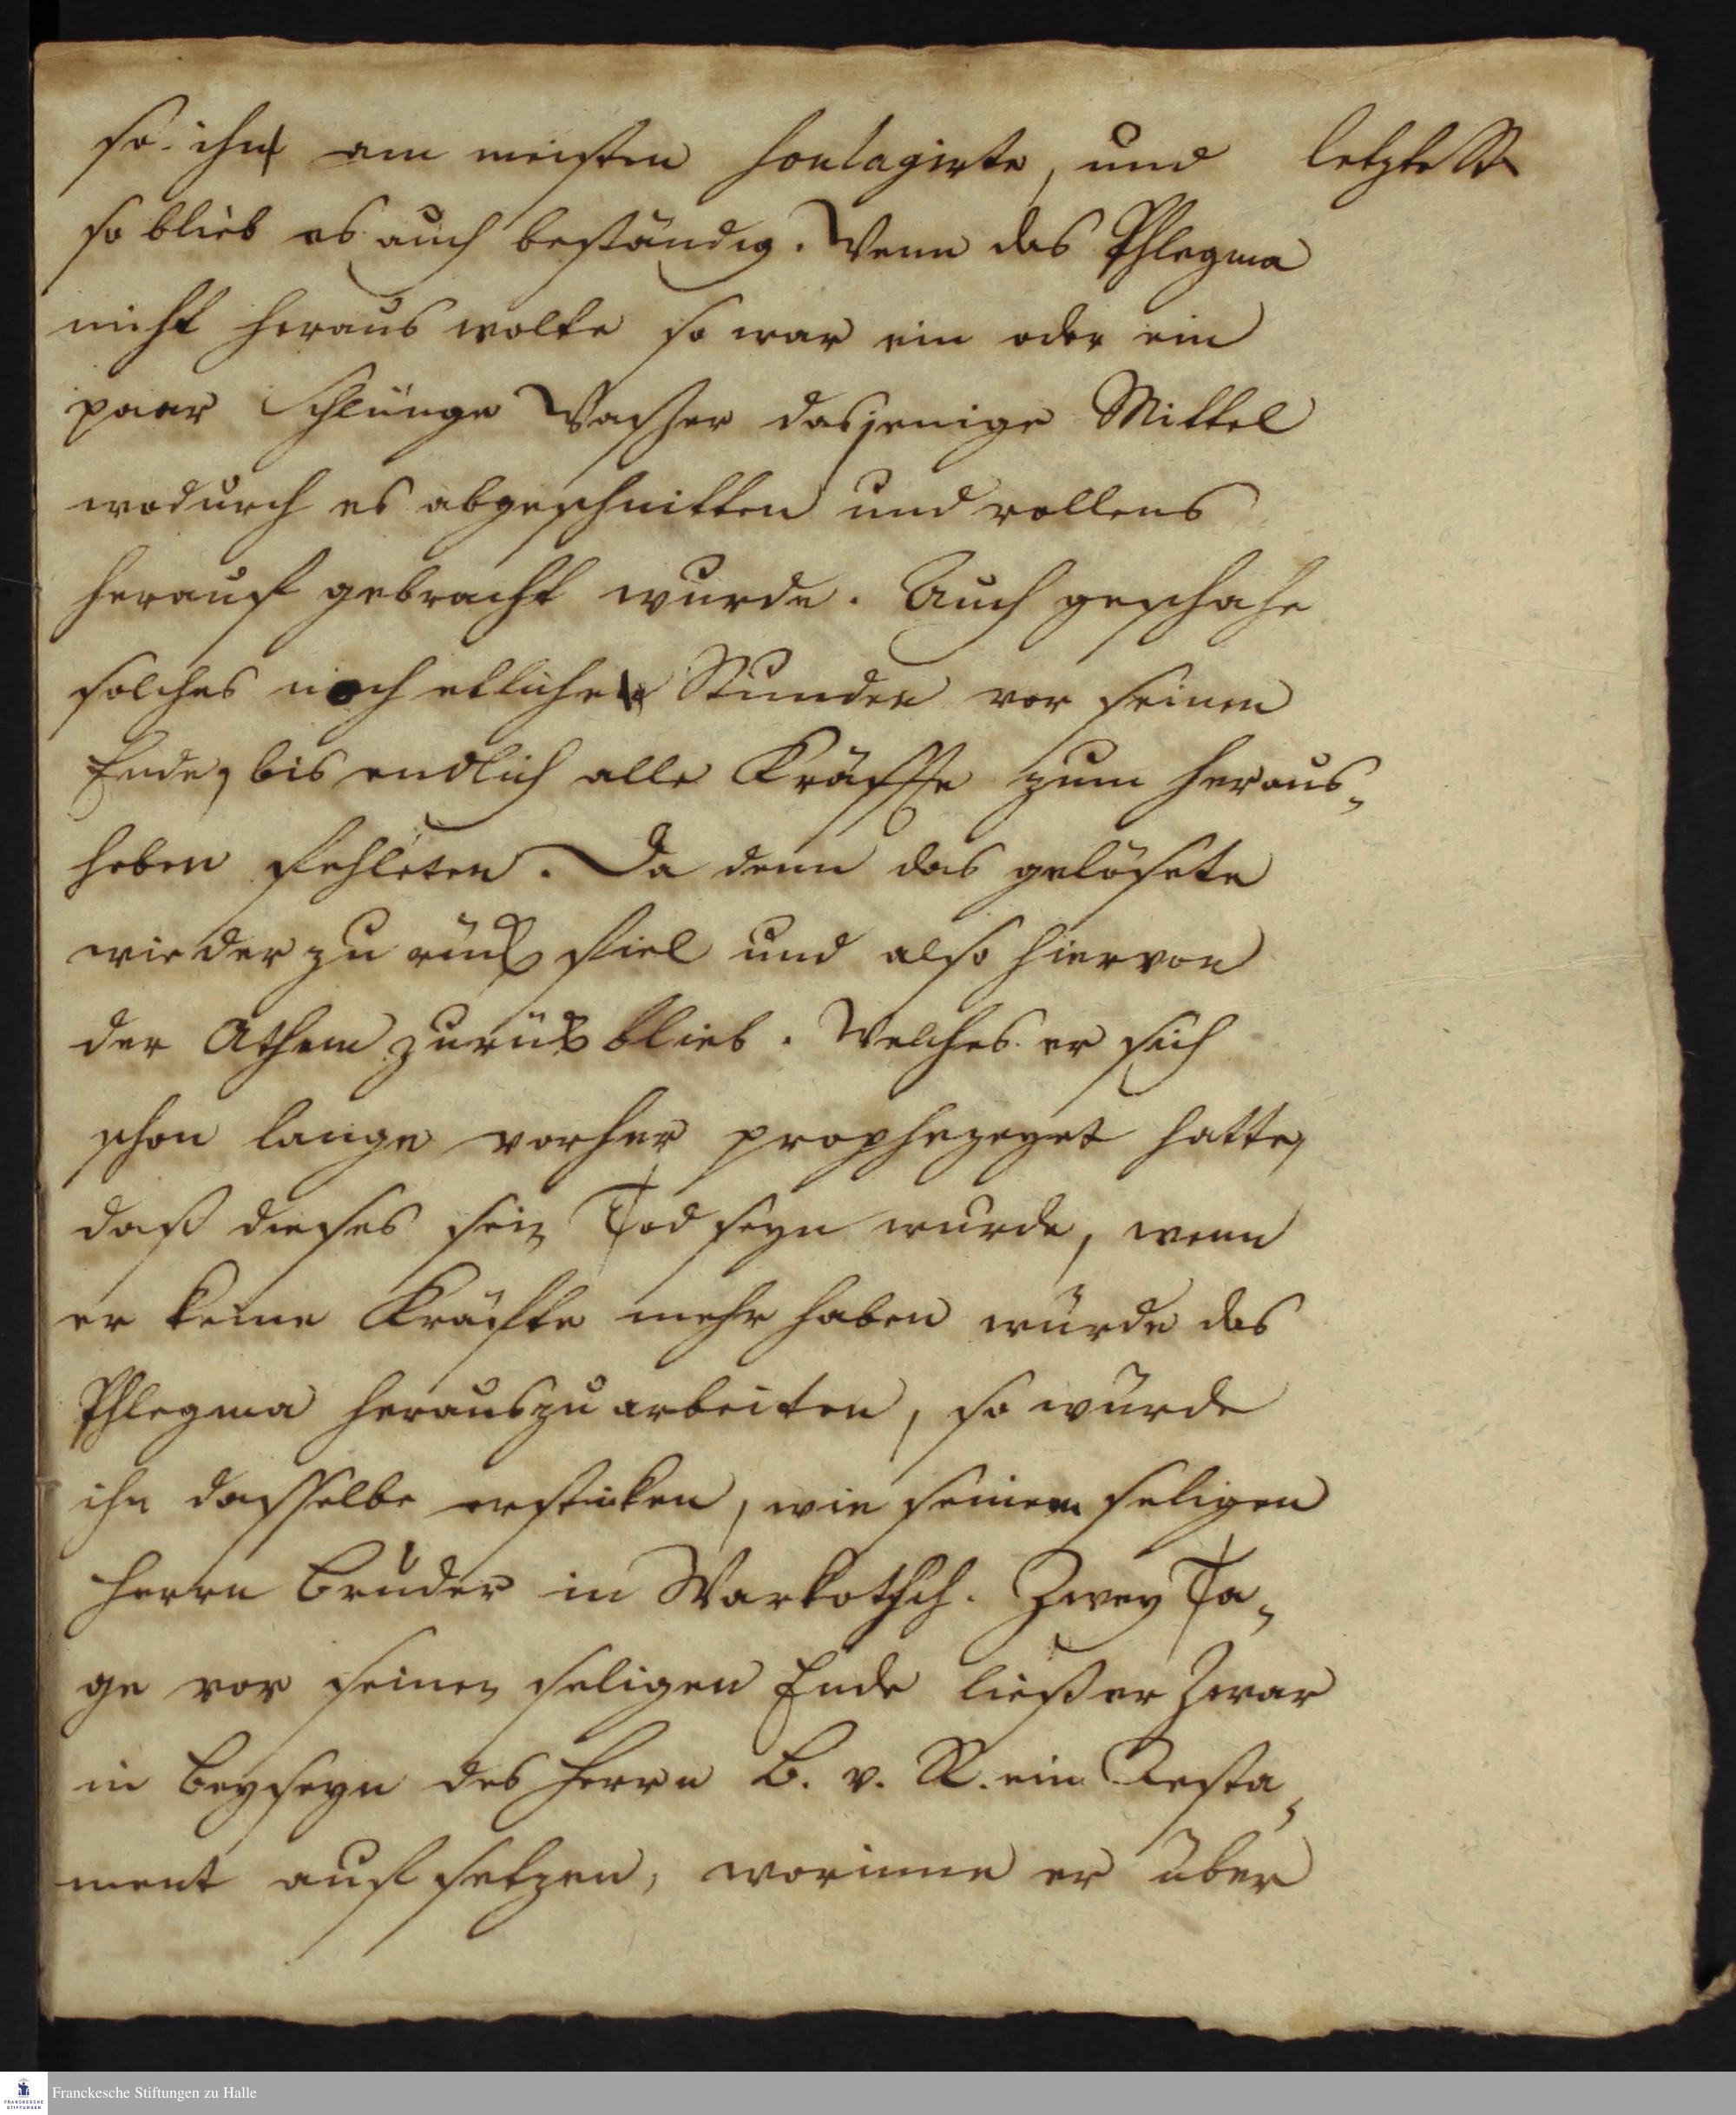 so ihn am meisten soulagirte, und letzte St
so blieb es auch beständig. Wenn das Phlegma
nicht heraus wolte so war ein oder ein
paar Schlünge Wasser dasjenige Mittel
wodurch es abgeschnitten und vollens
herauf gebracht wurde. Auch geschahe
solches noch etliche Stunden vor seinen
Ende, bis endlich alle Kräffte zum heraus-
heben fehleten. Da denn das gelösete
wieder zurück fiel und also hiervon
der Athem zurück blieb. Welches er sich
schon lange vorher prophezeyet hatte,
daß dieses sein Tod seyn wurde, wenn
er keine Kräfte mehr haben würde das
Phlegma herauszuarbeiten, so würde
ihn dasselbe ersticken, wie seinem seligen
Herrn Bruder in Markotsch. Zwey Ta-
ge vor seinen seligen Ende ließ er zwar
in Beyseyn des Herrn B. v. R. ein Testa-
ment auf setzen, worinne er über
Franckesche Stiftungen zu Halle
FRANCKESCHE
STIFTUNGEN